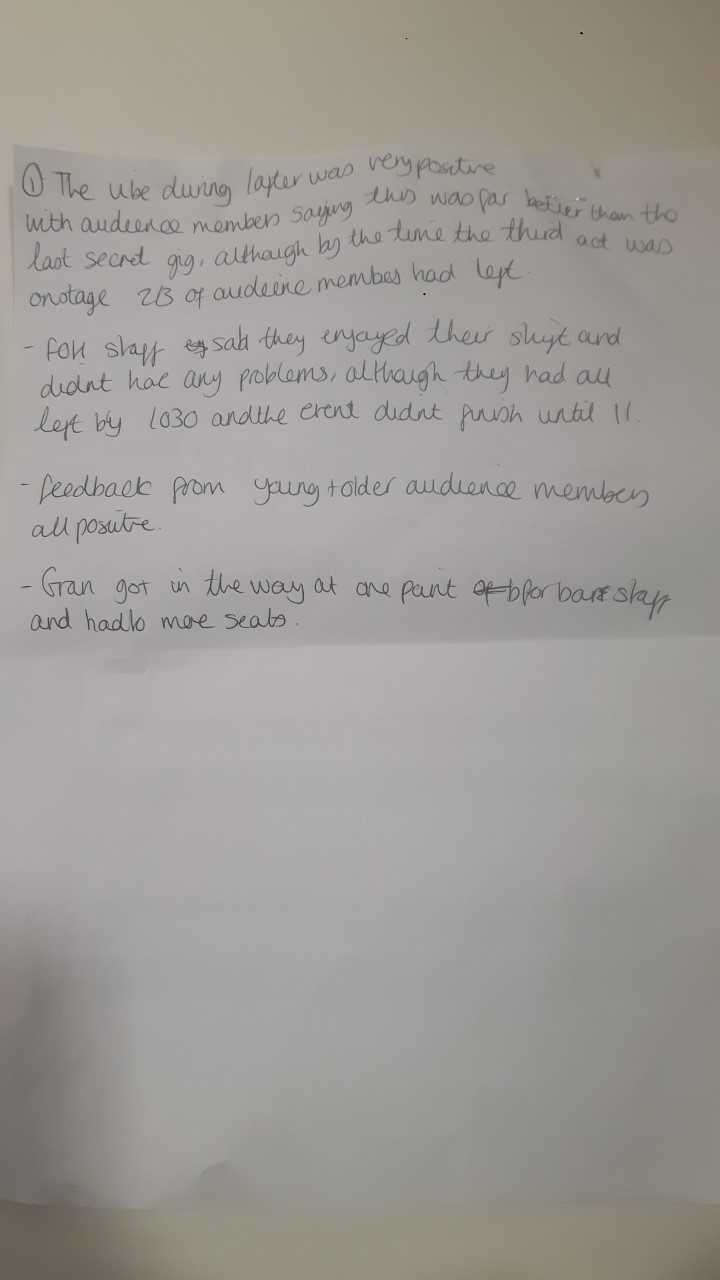 ① The vibe during layter was very positive
with audience members saying this was far better than the
last secret gig, although by the time the third act was
onstage 2/3 of audeine membes had left.
- FOH staff said they enjoyed their shift and
didnt hae any problems, although they had all
left by 1030 and the event didnt finish until 11.
- feedback from young + older audience members
all positve.
- Gran got in the way at one point for bar staff
and had to move seats.